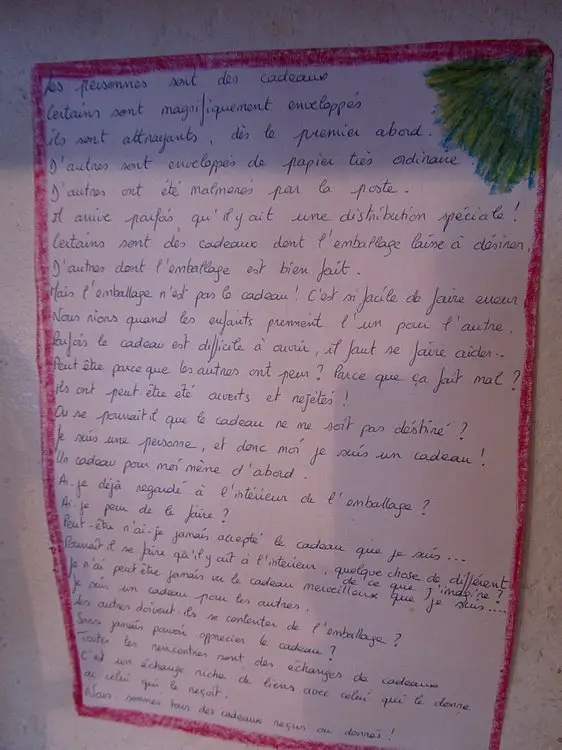 Les personnes sont des cadeaux
Certains sont magnifiquement enveloppés
ils sont attrayants, dès le premier abord.
D'autres sont enveloppés de papier très ordinaire
D'autres ont été malmenés par la poste.
Il arrive parfois qu'il y ait une distribution spéciale !
Certains sont des cadeaux dont l'emballage laisse à désirer,
D'autres dont l'emballage est bien fait.
Mais l'emballage n'est pas le cadeau ! C'est si facile de faire erreur
Nous rions quand les enfants prennent l'un pour l'autre,
Parfois le cadeau est difficile à ouvrir, il faut se faire aider...
Peut être parce que les autres ont peur ? Parce que ça fait mal ?
Ils ont peut-être été ouverts et rejétés !
Ou se pourrait il que le cadeau ne me soit pas déstiné ?
Je suis une personne, et donc moi je suis un cadeau !
Un cadeau pour moi même d'abord.
Ai-je déjà regardé à l'intérieur de l'emballage ?
Ai-je peur de le faire ?
Peut-être n'ai-je jamais accepté le cadeau que je suis...
Pourrait il se faire qu'il y ait à l'intérieur, quelque chose de différent
de ce que j'imagine ?
Je n'ai peut être jamais vu le cadeau merveilleux que je suis....
Je suis un cadeau pour les autres.
Les autres doivent ils se contenter de l'emballage ?
Sans jamais pouvoir apprécier le cadeau ?
Toutes les rencontres sont des échanges de cadeaux
C'est un échange riche de liens avec celui qui le donne
au celui qui le reçoit.
Nous sommes tous des cadeaux reçus ou donnés !